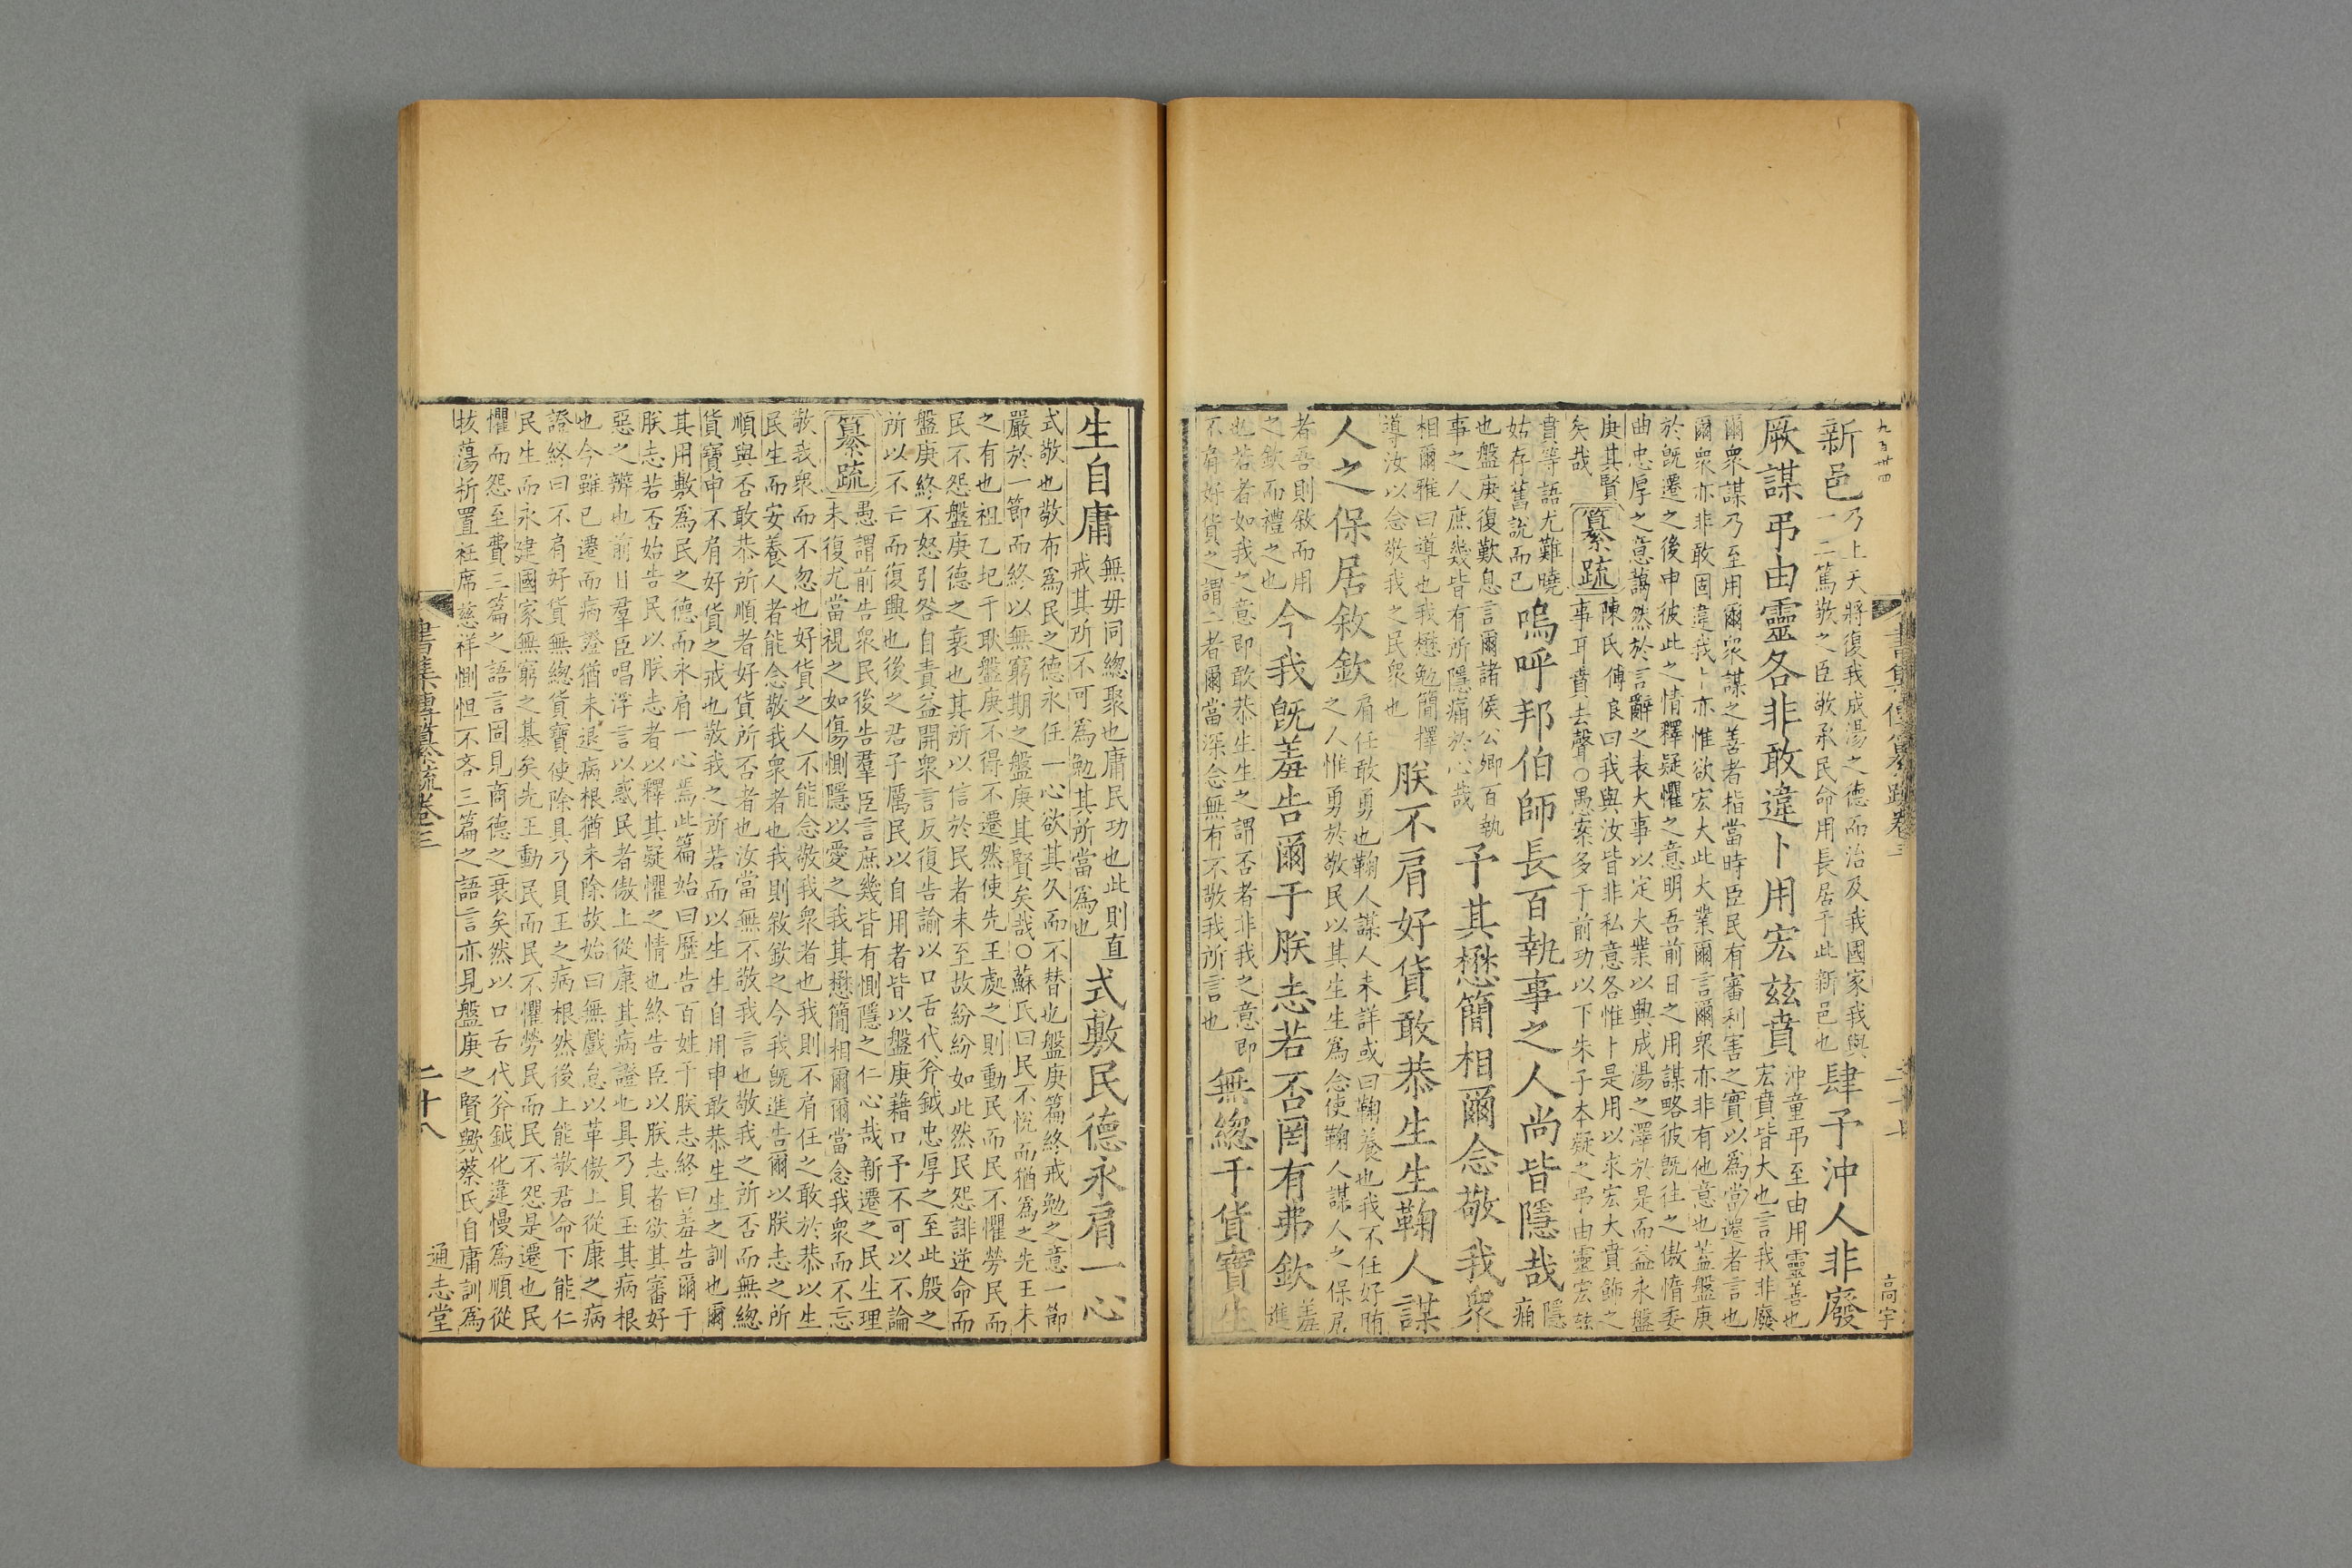 九百卅四
書集傳纂疏卷三
二十七
高宇
新邑
乃上天將復我成湯之德而治及我國家我與
一二篤敬之臣敬承民命用長居于此新邑也
肆予沖人非廢
厥謀弔由靈各非敢違卜用宏兹賁
沖童弔至由用靈善也
宏賁皆大也言我非廢
爾衆謀乃至用爾衆謀之善者指當時臣民有審利害之實以爲當遷者言也
爾衆亦非敢固違我卜亦惟欲宏大此大業爾言爾衆亦非有他意也蓋盤庚
於旣遷之後申彼此之情釋疑懼之意明吾前日之用謀略彼旣往之傲惰委
曲忠厚之意藹然於言辭之表大事以定大業以興成湯之澤於是而益永盤
庚其賢
矣哉
纂疏
陳氏傅良曰我與汝皆非私意各惟卜是用以求宏大賁飾之
事耳賁去聲○愚案多于前功以下朱子本疑之弔由靈宏兹
賁等語尤難曉
姑存舊說而已
嗚呼邦伯師長百執事之人尚皆隱哉
隱
痛
也盤庚復歎息言爾諸侯公卿百執
事之人庶幾皆有所隱痛於心哉
予其懋簡相爾念敬我衆
相爾雅曰導也我懋勉簡擇
導汝以念敬我之民衆也
朕不肩好貨敢恭生生鞠人謀
人之保居敘欽
肩任敢勇也鞠人謀人未詳或曰鞠養也我不任好賄
之人惟勇於敬民以其生生爲念使鞠人謀人之保居
者吾則敘而用
之欽而禮之也
今我旣羞告爾于朕志若否罔有弗欽
羞
進
也若者如我之意即敢恭生生之謂否者非我之意即
不肩好貨之謂二者爾當深念無有不敬我所言也
無總于貨寶生
生自庸
無毋同總聚也庸民功也此則直
戒其所不可爲勉其所當爲也
式敷民德永肩一心
式敬也敬布爲民之德永任一心欲其久而不替也盤庚篇終戒勉之意一節
嚴於一節而終以無窮期之盤庚其賢矣哉○蘇氏曰民不悅而猶爲之先王未
之有也祖乙圯于耿盤庚不得不遷然使先王處之則動民而民不懼勞民而
民不怨盤庚德之衰也其所以信於民者未至故紛紛如此然民怨誹逆命而
盤庚終不怒引咎自責益開衆言反復告諭以口舌代斧鉞忠厚之至此殷之
所以不亡而復興也後之君子厲民以自用者皆以盤庚藉口予不可以不論
纂疏
愚謂前告衆民後告羣臣言庶幾皆有惻隱之仁心哉新遷之民生理
未復尤當視之如傷惻隱以愛之我其懋簡相爾爾當念我衆而不忘
敬我衆而不忽也好貨之人不能念敬我衆者也我則不肩任之敢於恭以生
民生而安養人者能念敬我衆者也我則敘欽之今我旣進告爾以朕志之所
順與否敢恭所順者好貨所否者也汝當無不敬我言也敬我之所否而無總
貨寶申不肩好貨之戒也敬我之所若而以生生自用申敢恭生生之訓也爾
其用敷爲民之德而永肩一心焉此篇始曰歷告百姓于朕志終曰羞告爾于
朕志若否始告民以朕志者以釋其疑懼之情也終告臣以朕志者欲其審好
惡之辨也前日羣臣唱浮言以惑民者傲上從康其病證也具乃貝玉其病根
也今雖已遷而病證猶未退病根猶未除故始曰無戲怠以革傲上從康之病
證終曰不肩好貨無總貨寶使除具乃貝玉之病根然後上能敬君命下能仁
民生而永建國家無窮之基矣先王動民而民不懼勞民而民不怨是遷也民
懼而怨至費三篇之語言固見商德之衰矣然以口舌代斧鉞化違慢爲順從
拔蕩析置袵席慈祥惻怛不吝三篇之語言亦見盤庚之賢歟蔡氏自庸訓爲
書集傳纂疏卷三
二十八
通志堂